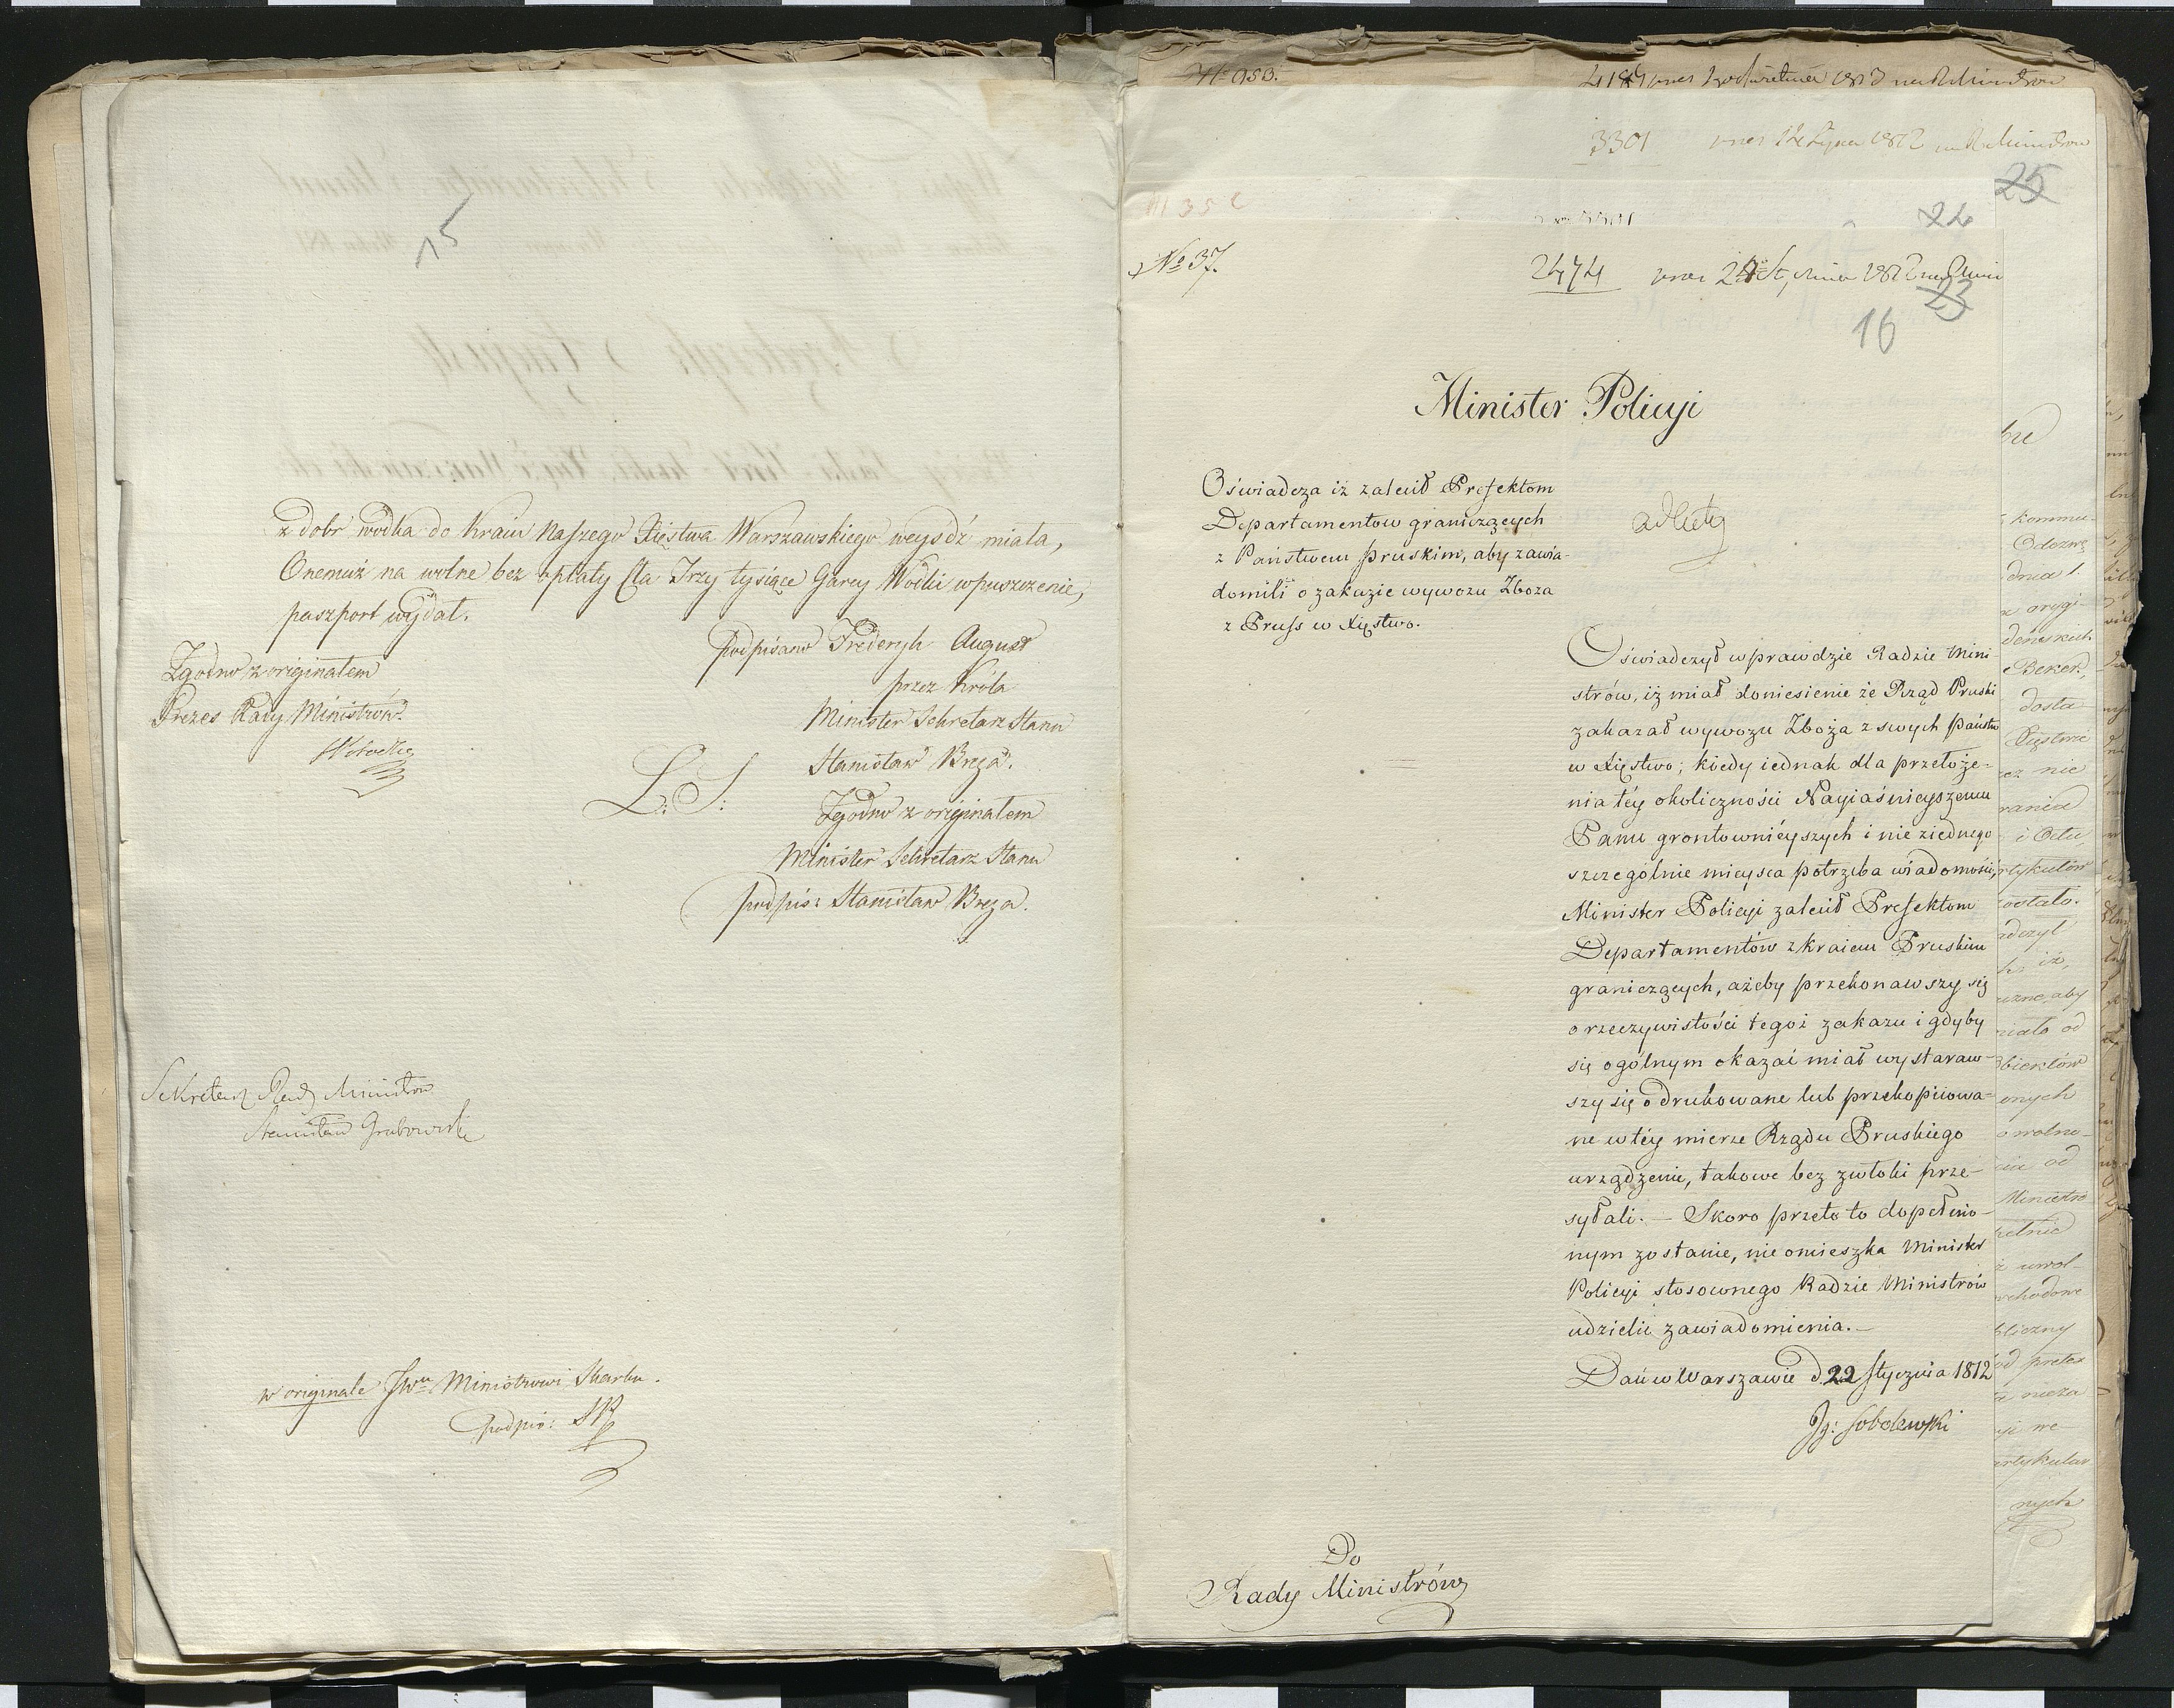 15
z dobr wodka do Kraiu Naszego Xięstwa Warszawskiego weyśdź miała,
Onemuż na wolne bez opłaty Cła Trzy tysiące Garcy Wódki wpuszczenie,
paszport wydał.
Zgodno z originałem
Prezes Rady Ministrów.
podpisano Frederyk August
przez Króla
Minister Sekretarz Stanu
L: S: Stanisław Breza.
Zgodno z originałem
Minister Sekretarz Stanu
podpis: Stanisław Breza.
Sekretarz Rady Ministrów
Stanisław Grabowski
w originale JWu Ministrowi Skarbu.
podpis: SP
3301 1812
25
24
No 37.
2474 1812
23
16
Minister Policyi
Oświadcza iż zalecił Prefektom
Departamentow graniczących
z Państwem pruskim, aby zawia-
domili o zakazie wywozu Zboza
z Pruss w Xięstwo.
Oświadczył wprawdzie Radzie Mini
strów, iż miał doniesienie że Rząd Pruski
zakazał wywozu Zboża z swych państw
w Xięstwo; kiedy iednak dla przełoże-
nia téy okoliczności Nayiaśnieyszemu
Panu grontownieyszych i nie ziednego
szczególnie mieysca potrzeba wiadomości,
Minister Policyi zalecił Prefektom
Departamentów z kraiem Pruskim
graniczących, ażeby przekonawszy się
o rzeczywistości tegoż zakazu i gdyby
się ogólnym okazać miał wystaraw-
szy się o drukowane lub przekopiowa-
ne w téy mierze Rządu Pruskiego
urządzenie, takowe bez zwłoki prze-
syłali. — Skoro przeto to dopełnio-
nym zostanie, nie omieszka Minister
Policyi stosownego Radzie Ministrów
udzielić zawiadomienia. —
Dań w Warszawie d. 22 Stycznia 1812
Ig: Sobolewski
Do
Rady Ministrów